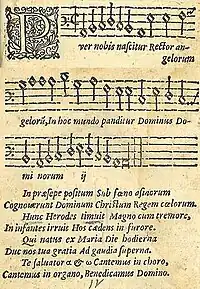 Puer nobis nascitur Rector an-
gelorum
gelorū, In hoc mundo panditur Dominus Do-
mi norum ij
In præsepe positum Sub fœno asinorum
Cognoverunt Dominum Christum Regem cœlorum.
Hunc Herodes timuit Magno cum tremore,
In infantes irruit Hos cædens in furore.
Qui natus ex Maria Die hodierna
Duc nos tua gratia Ad gaudia superna.
Te salvator α & ω Cantemus in choro,
Cantemus in organo, Benedicamus Domino.